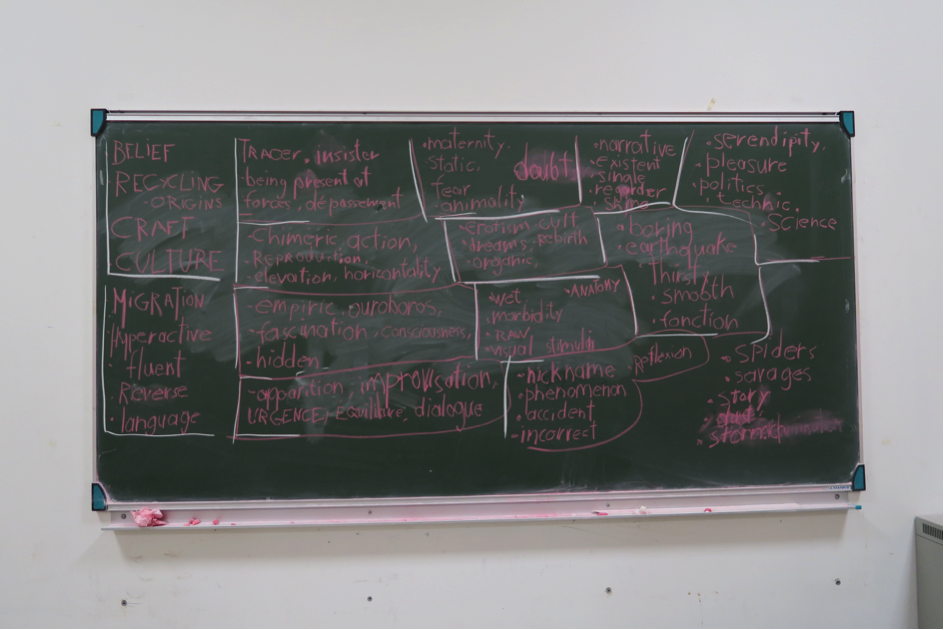 BELIEF
RECYCLING
· ORIGINS
CRAFT
CULTURE
MIGRATION
Hyperactive
fluent
Reverse
· language
TRACER · insister
· being present at
forces, dépassement
· chimeric action,
REPRODUCTION,
· elevation, horizontality
· empiric, ouroboros,
· fascination, consciousness,
· hidden
· apparition, improvisation,
URGENCE, équilibre, dialogue
· maternity.
static,
fear
animality
doubt
· erotism cult
· dreams, Rebirth
· organic,
· wet
· ANATOMY
· morbidity
· RAW
· visual stimulti
· nickname
· phenomenon
· accident
· incorrect
· narrative
· existent
single
· recorder
· boring
· earthquake
Thirsty
· smooth
· fonction
Reflexion
· serendipity,
· pleasure
· politics
· technic.
· Science
· SPiders
· savages
· Story